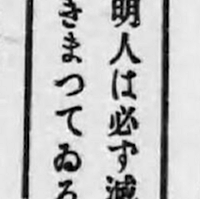 明人は必ず滅
きまつてゐる